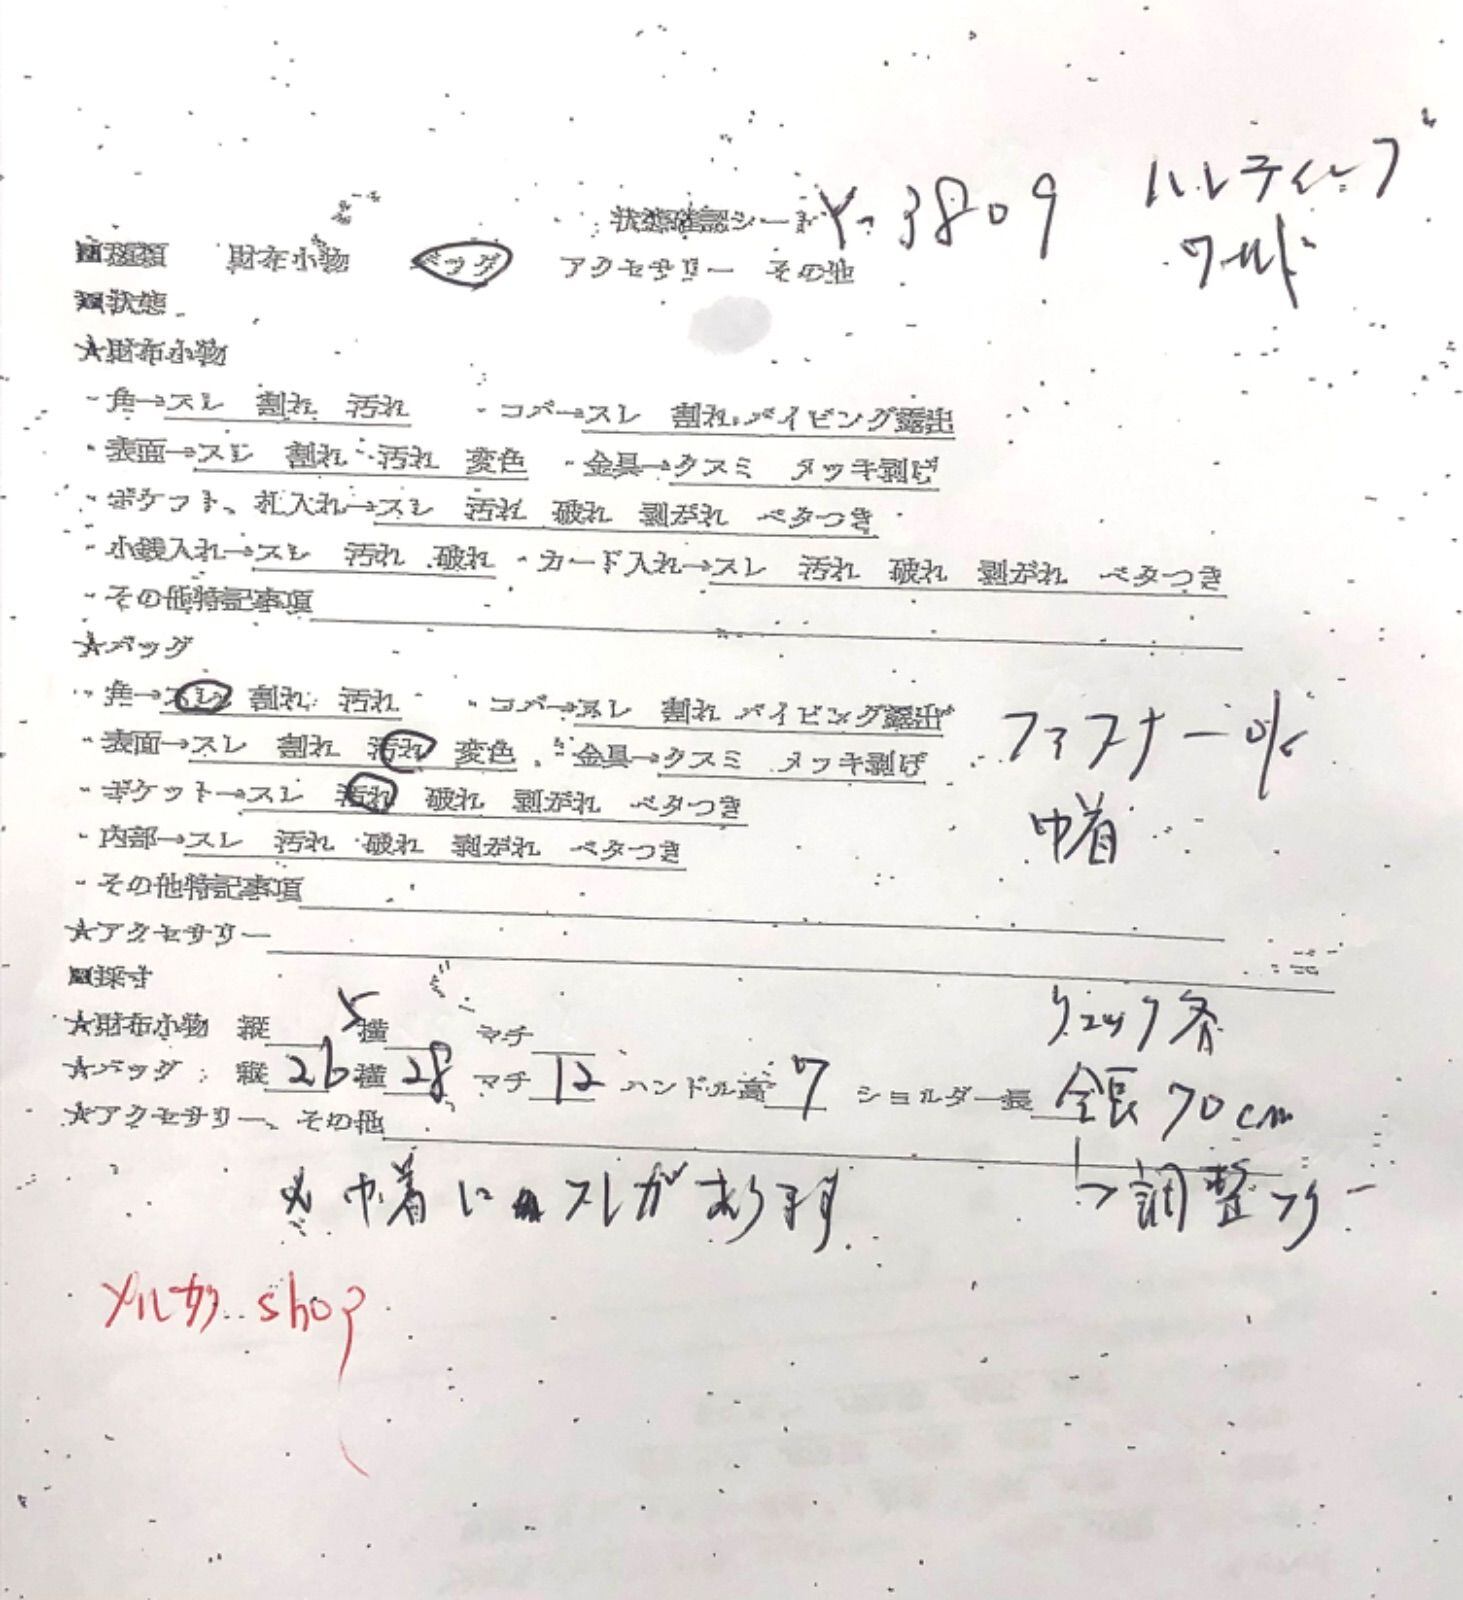 状態確認シート Y-3809 ハンティング
ワールド
■種類 財布小物 バッグ アクセサリー その他
■状態
★財布小物
・角→スレ 割れ 汚れ ・コバ→スレ 割れ パイピング露出
・表面→スレ 割れ 汚れ 変色 ・金具→クスミ メッキ剥げ
・ポケット、札入れ→スレ 汚れ 破れ 剥がれ ベタつき
・小銭入れ→スレ 汚れ 破れ ・カード入れ→スレ 汚れ 破れ 剥がれ ベタつき
・その他特記事項
★バッグ
・角→スレ 割れ 汚れ ・コバ→スレ 割れ パイピング露出
・表面→スレ 割れ 汚れ 変色 ・金具→クスミ メッキ剥げ ファスナーok
・ポケット→スレ 汚れ 破れ 剥がれ ベタつき 巾着
・内部→スレ 汚れ 破れ 剥がれ ベタつき
・その他特記事項
★アクセサリー
■採寸
★財布小物 縦 横 マチ リュック
★バッグ 縦 26 横 28 マチ 12 ハンドル高 7 ショルダー長 全長 70cm
★アクセサリー、その他
※巾着にスレがあります 調整
メルカリ shop